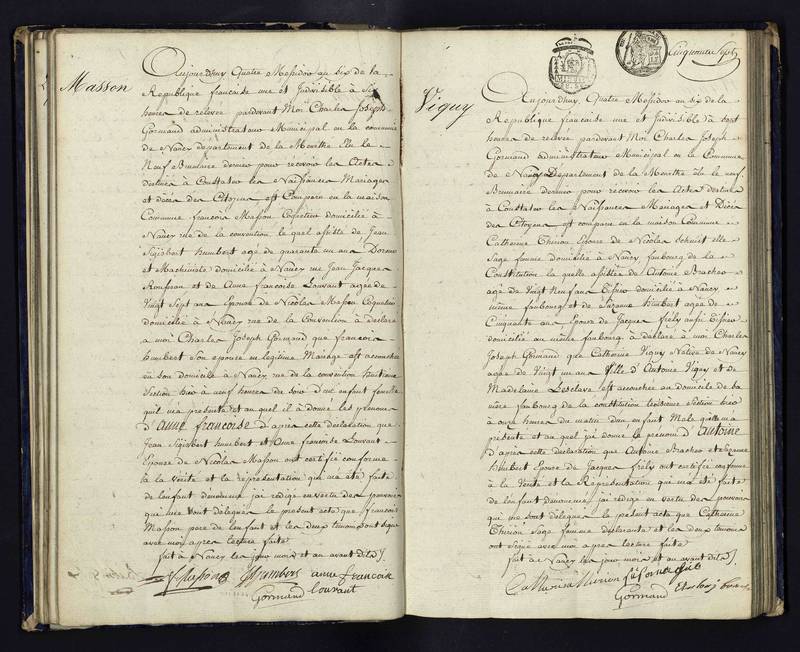 Masson
Aujourdhuy Quatre Messidor an six de la
Republique francaise une et Indivisible à
heures de relevée pardevant Moi Charles Joseph
Gormand administrateur Municipal en la commune
de Nancy département de la Meurthe Elu le
Neuf Brumaire dernier pour recevoir les Actes
destinés à Constater les Naissances Mariages
et décès des Citoyens est Comparu en la maison
Commune francois Masson domicilié à
Nancy rue de la convention lequel assisté de Jean
Sigisbert humbert agé de quarante un ans
et Machiniste domicilié à Nancy rue Jean Jacques
Rousseau et de Anne francoise Louvant agée de
Vingt sept ans Epouse de Nicolas Masson
domicilié à Nancy rue de la Convention à déclaré
a moi Charles Joseph Gormand que francoise
humbert son epouse en legitime Mariage est accouchée
en son domicile à Nancy rue de la convention huitieme
Section hier à neuf heures du soir d'un enfant femelle
quil ma presenté et au quel il à donné les prenoms
d'anne francoise d'apres cette déclaration que
Jean Sigisbert humbert et Anne francoise Louvant
Epouse de Nicolas Masson ont certifié conforme
à la Vérité et la représentation qui ma été faite
de lenfant denommé jai redigé en vertu des pouvoirs
qui me sont délégués le present acte que francois
Masson pere de lenfant et les deux temoins ont signé
avec moi apres lecture faite
fait à Nancy les jour mois et an avant dits
f Masson humbert anne francoise
Gormand louvant
Cinquante Sept
Viguy
Aujourdhuy Quatre Messidor an six de la
Republique francaise une et Indivisible à
heures de relevée pardevant Moi Charles Joseph
Gormand administrateur Municipal en la Commune
de Nancy Département de la Meurthe élu le neuf
Brumaire dernier pour recevoir les Actes destinés
à Constater les Naissances Mariages et Décès
des Citoyens est comparu en la maison Commune
Catherine Thirion Epouse de Nicolas elle
Sage femme domiciliée à Nancy faubourg de la
Constitution la quelle assistée de Antoine
agé de Vingt Neuf ans domicilié à Nancy
même faubourg et de Suzanne humbert agée de
Cinquante ans Epouse de Jacques
domicilié au même faubourg à déclaré à moi Charles
Joseph Gormand que Catherine Viguy Native de Nancy
agée de Vingt un ans fille d'Antoine Viguy et de
Madelaine Lesclave est accouchée au domicile de sa
mere faubourg de la constitution troisieme Section hier
à onze heures du matin d'un enfant Male quelle m'a
présenté et au quel jai donné le prenom d'Antoine
D'apres cette déclaration que Antoine et Suzanne
humbert Epouse de Jacques ont certifié conforme
à la Vérité et la Représentation qui ma été faite
de lenfant denommé jai redigé en vertu des pouvoirs
qui me sont délégués le present acte que Catherine
Thirion Sage femme déclarante et les deux temoins
ont signé avec moi apres lecture faite
fait à Nancy les jour mois et an avant dits
Gormand